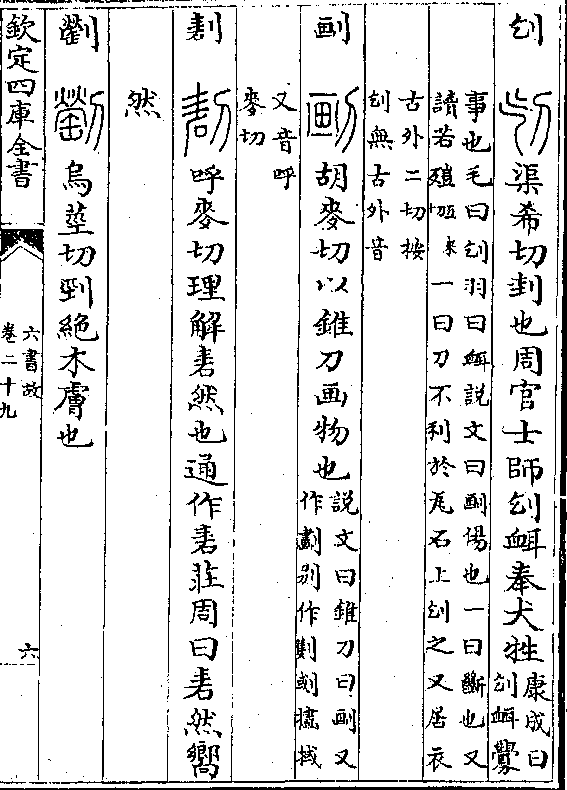 刉 渠希切刲也周官士師刉衈奉犬牲康成曰
刉衈釁
事也毛曰刉羽曰衈說文曰㓰傷也一曰斷也又
讀若 一曰刀不利於瓦石上刉之又居衣
古外二切按
刉無古外音
㓰 胡麥切以錐刀画物也說文曰錐刀曰㓰又
作劃別作
又音呼
麥切
剨 呼麥切理解砉然也通作砉莊周曰砉然嚮
然
烏莖切剄絕木膚也
欽定四庫全書
六書故
卷二十九
六